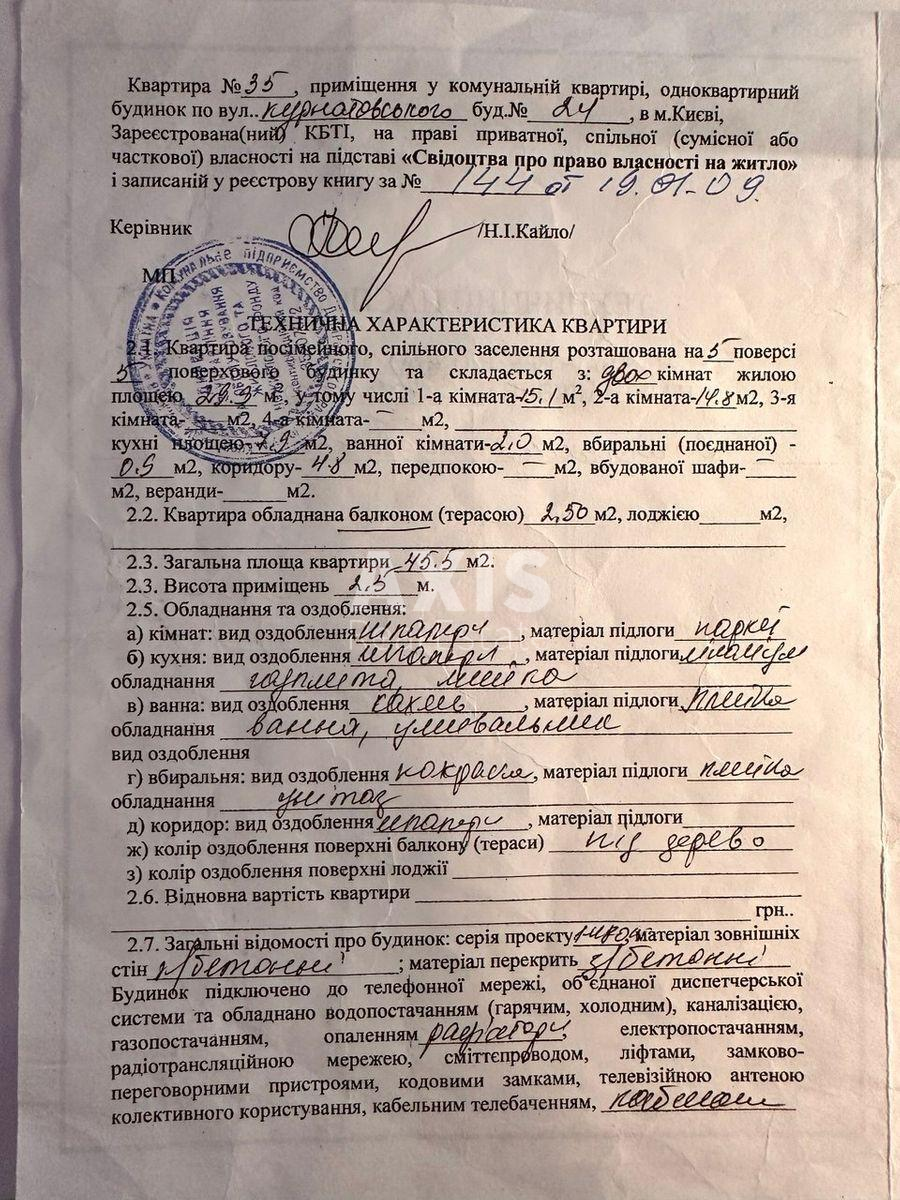 Квартира №35, приміщення у комунальній квартирі, одноквартирний
будинок по вул..Курнатовського буд.№ 24, в м.Києві,
Зареєстрована(ний) КБТІ, на праві приватної, спільної (сумісної або
часткової) власності на підставі «Свідоцтва про право власності на житло»
і записаній у реєстрову книгу за № 144 от 19.01-09.
Керівник /Н.І.Кайло/
МП
ТЕХНІЧНА ХАРАКТЕРИСТИКА КВАРТИРИ
2.1. Квартира посімейного, спільного заселення розташована на 5 поверсі
5 поверхового будинку та складається з: двох кімнат жилою
площею 29.9 м², у тому числі 1-а кімната-15.1 м², 2-а кімната-14.8м2, 3-я
кімната- — м2, 4-а кімната- — м2,
кухні площею-7.9 м2, ванної кімнати-2.0 м2, вбиральні (поєднаної) -
0.9 м2, коридору- 4.8 м2, передпокою- — м2, вбудованої шафи- —
м2, веранди-______м2.
2.2. Квартира обладнана балконом (терасою) 2,50 м2, лоджією______м2,
2.3. Загальна площа квартири 45.5 м2.
2.3. Висота приміщень 2.5 м.
AXIS
2.5. Обладнання та оздоблення:
а) кімнат: вид оздоблення шпалери, матеріал підлоги паркет
б) кухня: вид оздоблення шпалери, матеріал підлоги лінолеум
обладнання газплита, мийка
в) ванна: вид оздоблення кахель, матеріал підлоги плитка
обладнання ванна, умивальник
вид оздоблення
г) вбиральня: вид оздоблення покраска, матеріал підлоги плитка
обладнання унітаз
д) коридор: вид оздоблення шпалери, матеріал підлоги
ж) колір оздоблення поверхні балкону (тераси) під дерево
з) колір оздоблення поверхні лоджії
2.6. Відновна вартість квартири
грн..
2.7. Загальні відомості про будинок: серія проекту матеріал зовнішніх
стін з/бетонні ; матеріал перекрить з/бетонні
Будинок підключено до телефонної мережі, об'єднаної диспетчерської
системи та обладнано водопостачанням (гарячим, холодним), каналізацією,
газопостачанням, опаленням радіатори, електропостачанням,
радіотрансляційною мережею, сміттєпроводом, ліфтами, замково-
переговорними пристроями, кодовими замками, телевізійною антеною
колективного користування, кабельним телебаченням,